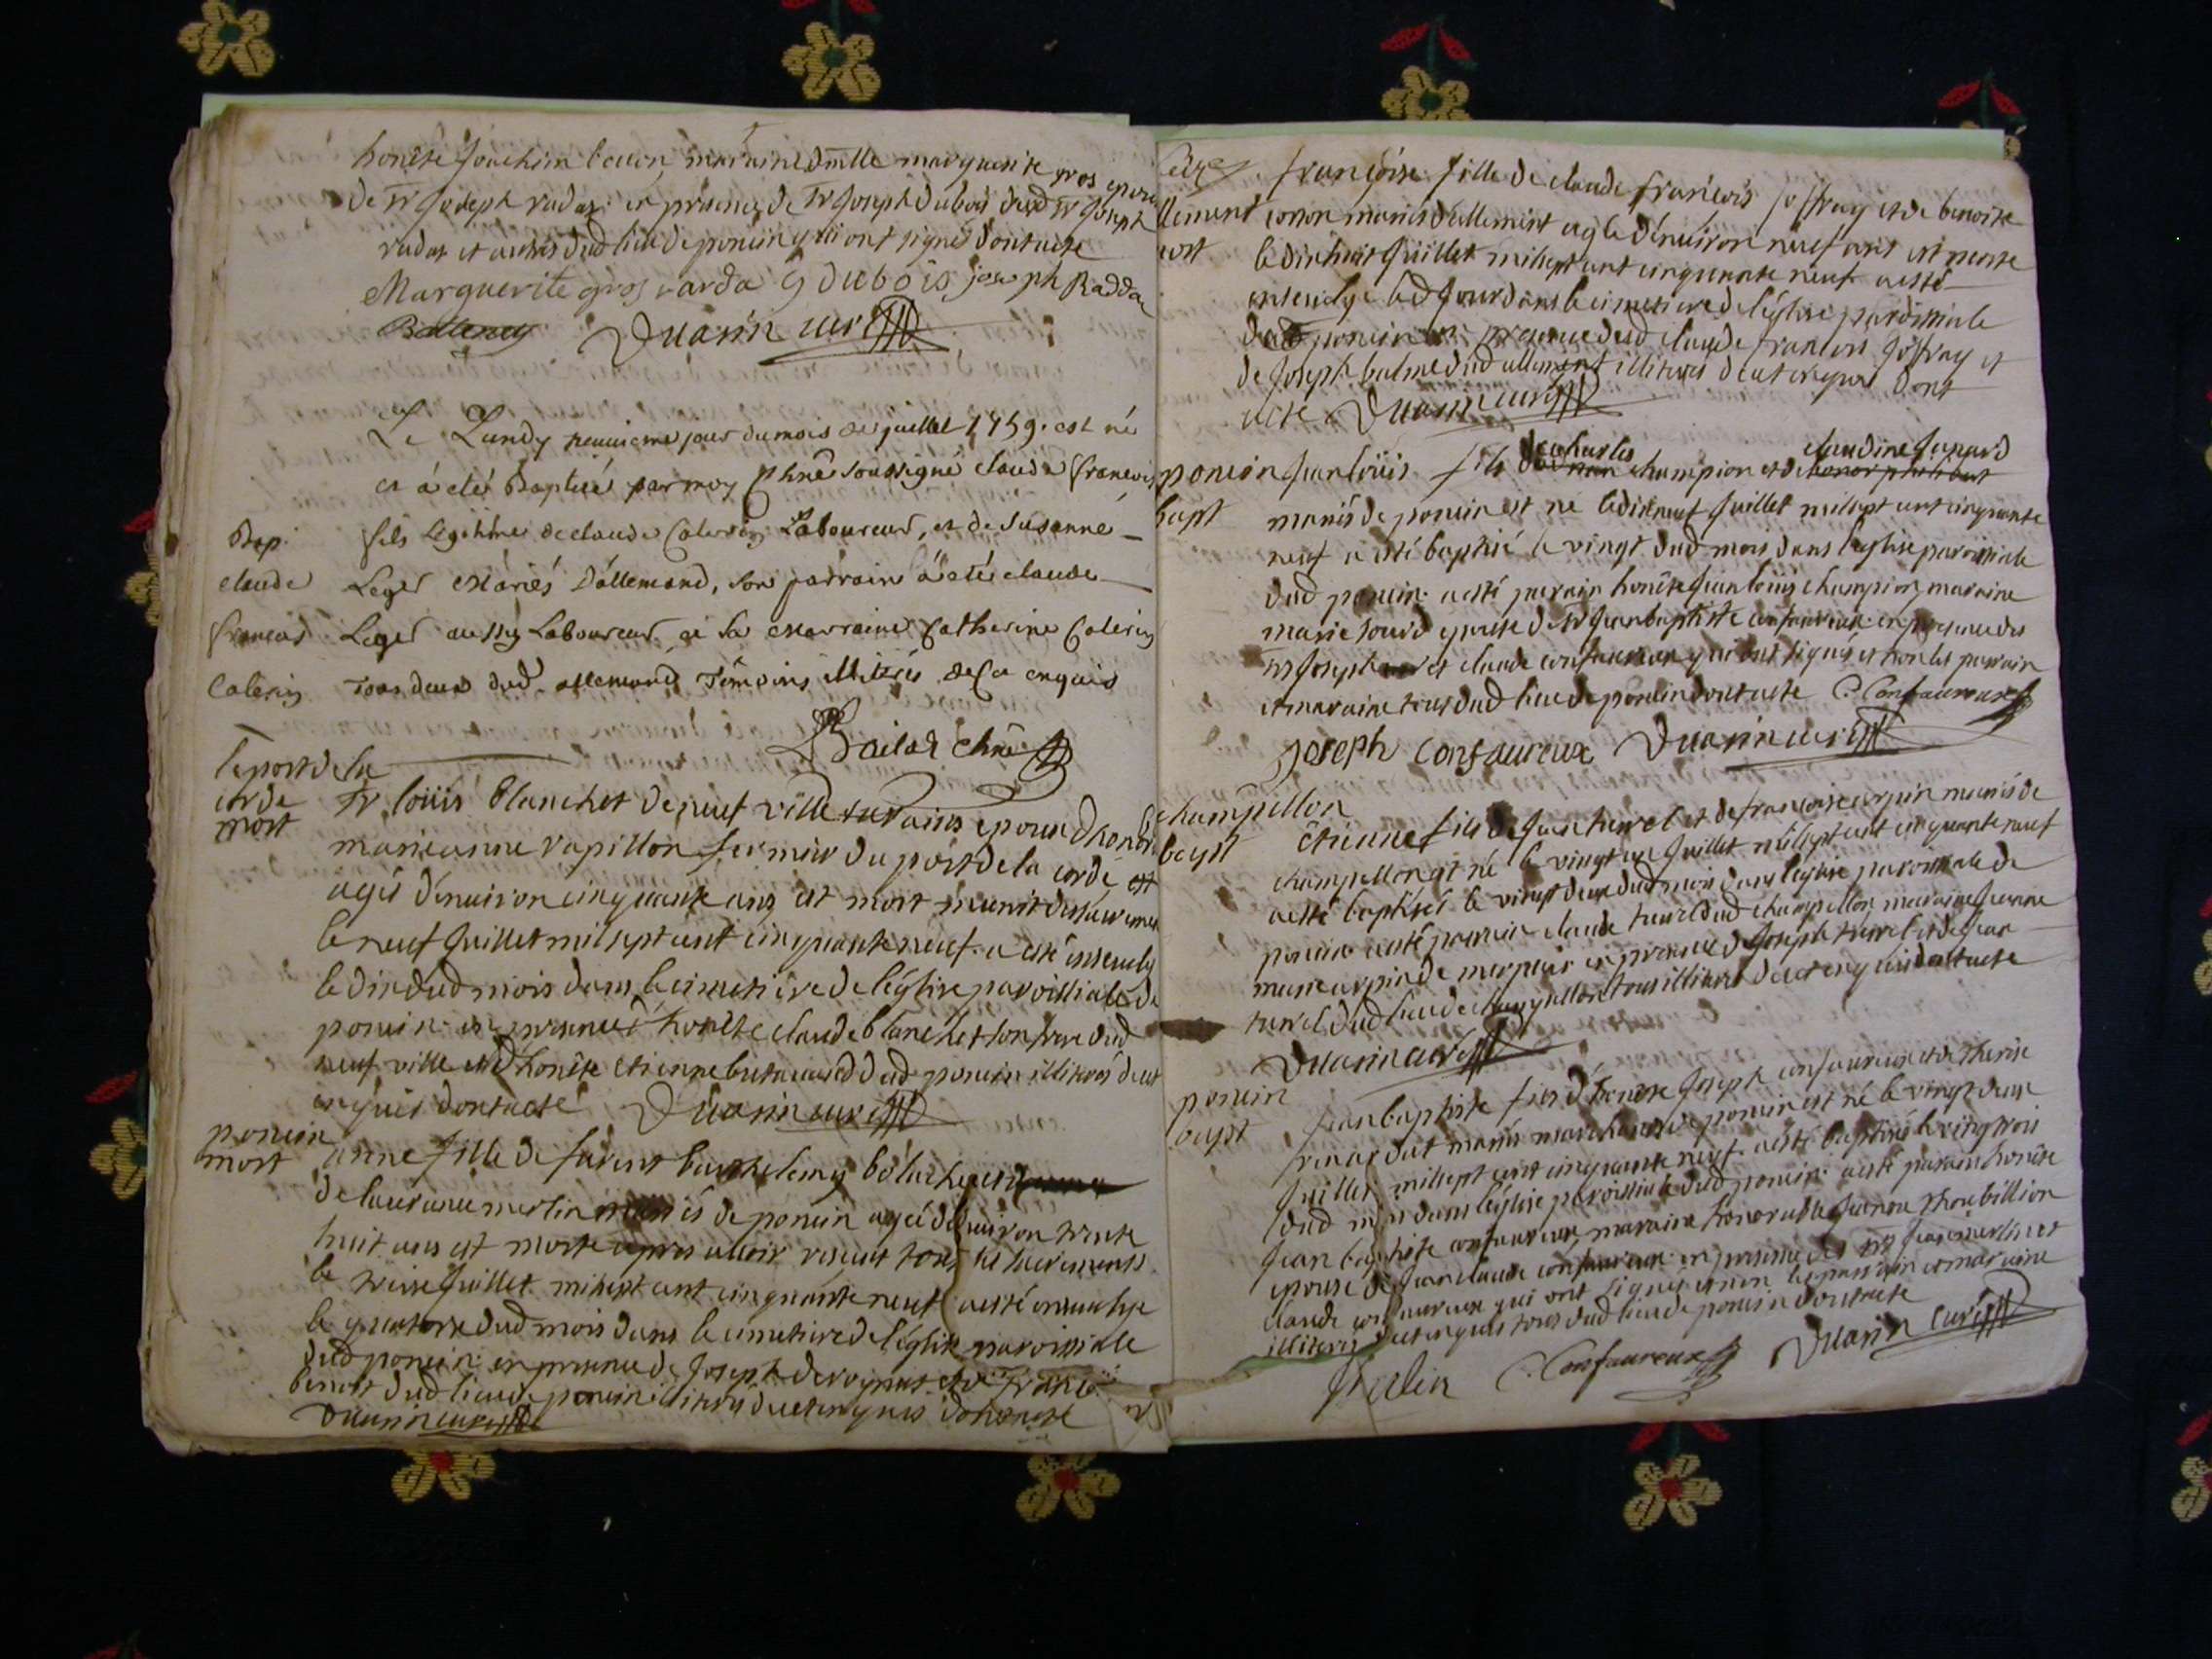 honête Joachim bolon, maraine dmlle marguerite gros epouse
de Sr Joseph radaz: en presence de Sr Joseph dubois dud Sr Joseph
radaz et autres dud lieu de poncin qui ont signés dont acte
Marguerite gros rarda G DUBOIS joseph Radda
Duarin curé
Le Lundy neuvieme jour du mois de juillet 1759. est né
et à eté Baptisé par moy soussigné claude francois
Bap. fils légitime de claude Caleriy Laboureur, et de Susanne
claude Leger Mariés D'allemand, son parrain à eté claude
francois Leger aussy Laboureur et sa Marraine Catherine Caleriy
Caleriy Tous deux dud. allemand Témoins illitérés de ce enquis
Bailad
le port de la
corde
mort
Sr loüis blanchet de neuf ville sur ains epoux dhonete
marieanne rapillon fermier du port de la corde
agé dénuiron cinquante ans est mort munit des sacremens
le neuf Juillet mil sept cent cinquante neuf. a esté enseuely
le dix dud mois dans le cimetiere de léglise paroissiale de
poncin. en presence d'honête claude blanchet son frere dud
neuf ville et dhonête etienne dud poncin illiterés deut
enquis dont acte Duarin curé
poncin
mort
anne fille de furent barthelemy bolache et
de laurance merlin mariés de poncin agée dénuiron trente
huit ans est morte apres auoir receut tous les sacrements
le treise Juillet mil sept cent cinquante neuf a esté enseuelye
le quatorse dud mois dans le cimetiere de léglise paroissiale
dud poncin: en presence de Joseph et de francois
benoit dud lieu de poncin illiterés deut enquis dont acte
Duarin curé
françoise fille de claude francois Joffray et de benoite
llement cosson mariés d'allement agée dénuiron neuf ans est morte
mort le dixhuit Juillet mil sept cent cinquante neuf a esté
enseuelye led Jour dans le cimetiere de léglise paroissiale
dud poncin en presence dud claude francois Joffray et
de Joseph balme dud allement illiterés deut enquis dont
acte Duarin curé
de charles claudine Junard
poncin Jean loüis fils champion et de
bapt mariés de poncin est né le dixneuf Juillet mil sept cent cinquante
neuf a esté baptisé le vingt dud mois dans léglise paroissiale
dud poncin. a esté parain honête Jean loüis champion, maraine
marie epouse de Sr Jean baptiste confavreux. en presence des
Srs Joseph et claude confavreux qui ont signés et non les parain
et maraine tous dud lieu de poncin dont acte C. Confaureux
Joseph Confaureux Duarin curé
champillon
bapt
étienne fils de Jean turrel et de francoise mariés de
champellon est né le vingt un Juillet mil sept cent cinquante neuf
a esté baptisé le vingt deux dud mois dans léglise paroissiale de
poncin a esté parain claude turrel dud champellon maraine Jeanne
marie de en presence de Joseph turrel et de Jean
turrel dud lieu de champellon tous illiterés deut enquis dont acte
Duarin curé
poncin
bapt
Jean baptiste fils d'honete Joseph confaureux et de therese
renardat mariés marchands de poncin est né le vingt deux
Juillet mil sept cent cinquante neuf a esté baptisé le vingt trois
dud mois dans léglise paroissiale dud poncin. a esté parain honête
Jean baptiste confaureux, maraine honorable Jeanne thoubillion
epouse de Jean claude confaureux. en presence des Srs Jean merlin et
claude confaureux qui ont signés et non les parrain et maraine
illiterés deut enquis tous dud lieu de poncin dont acte
Merlin C. Confaureux Duarin curé